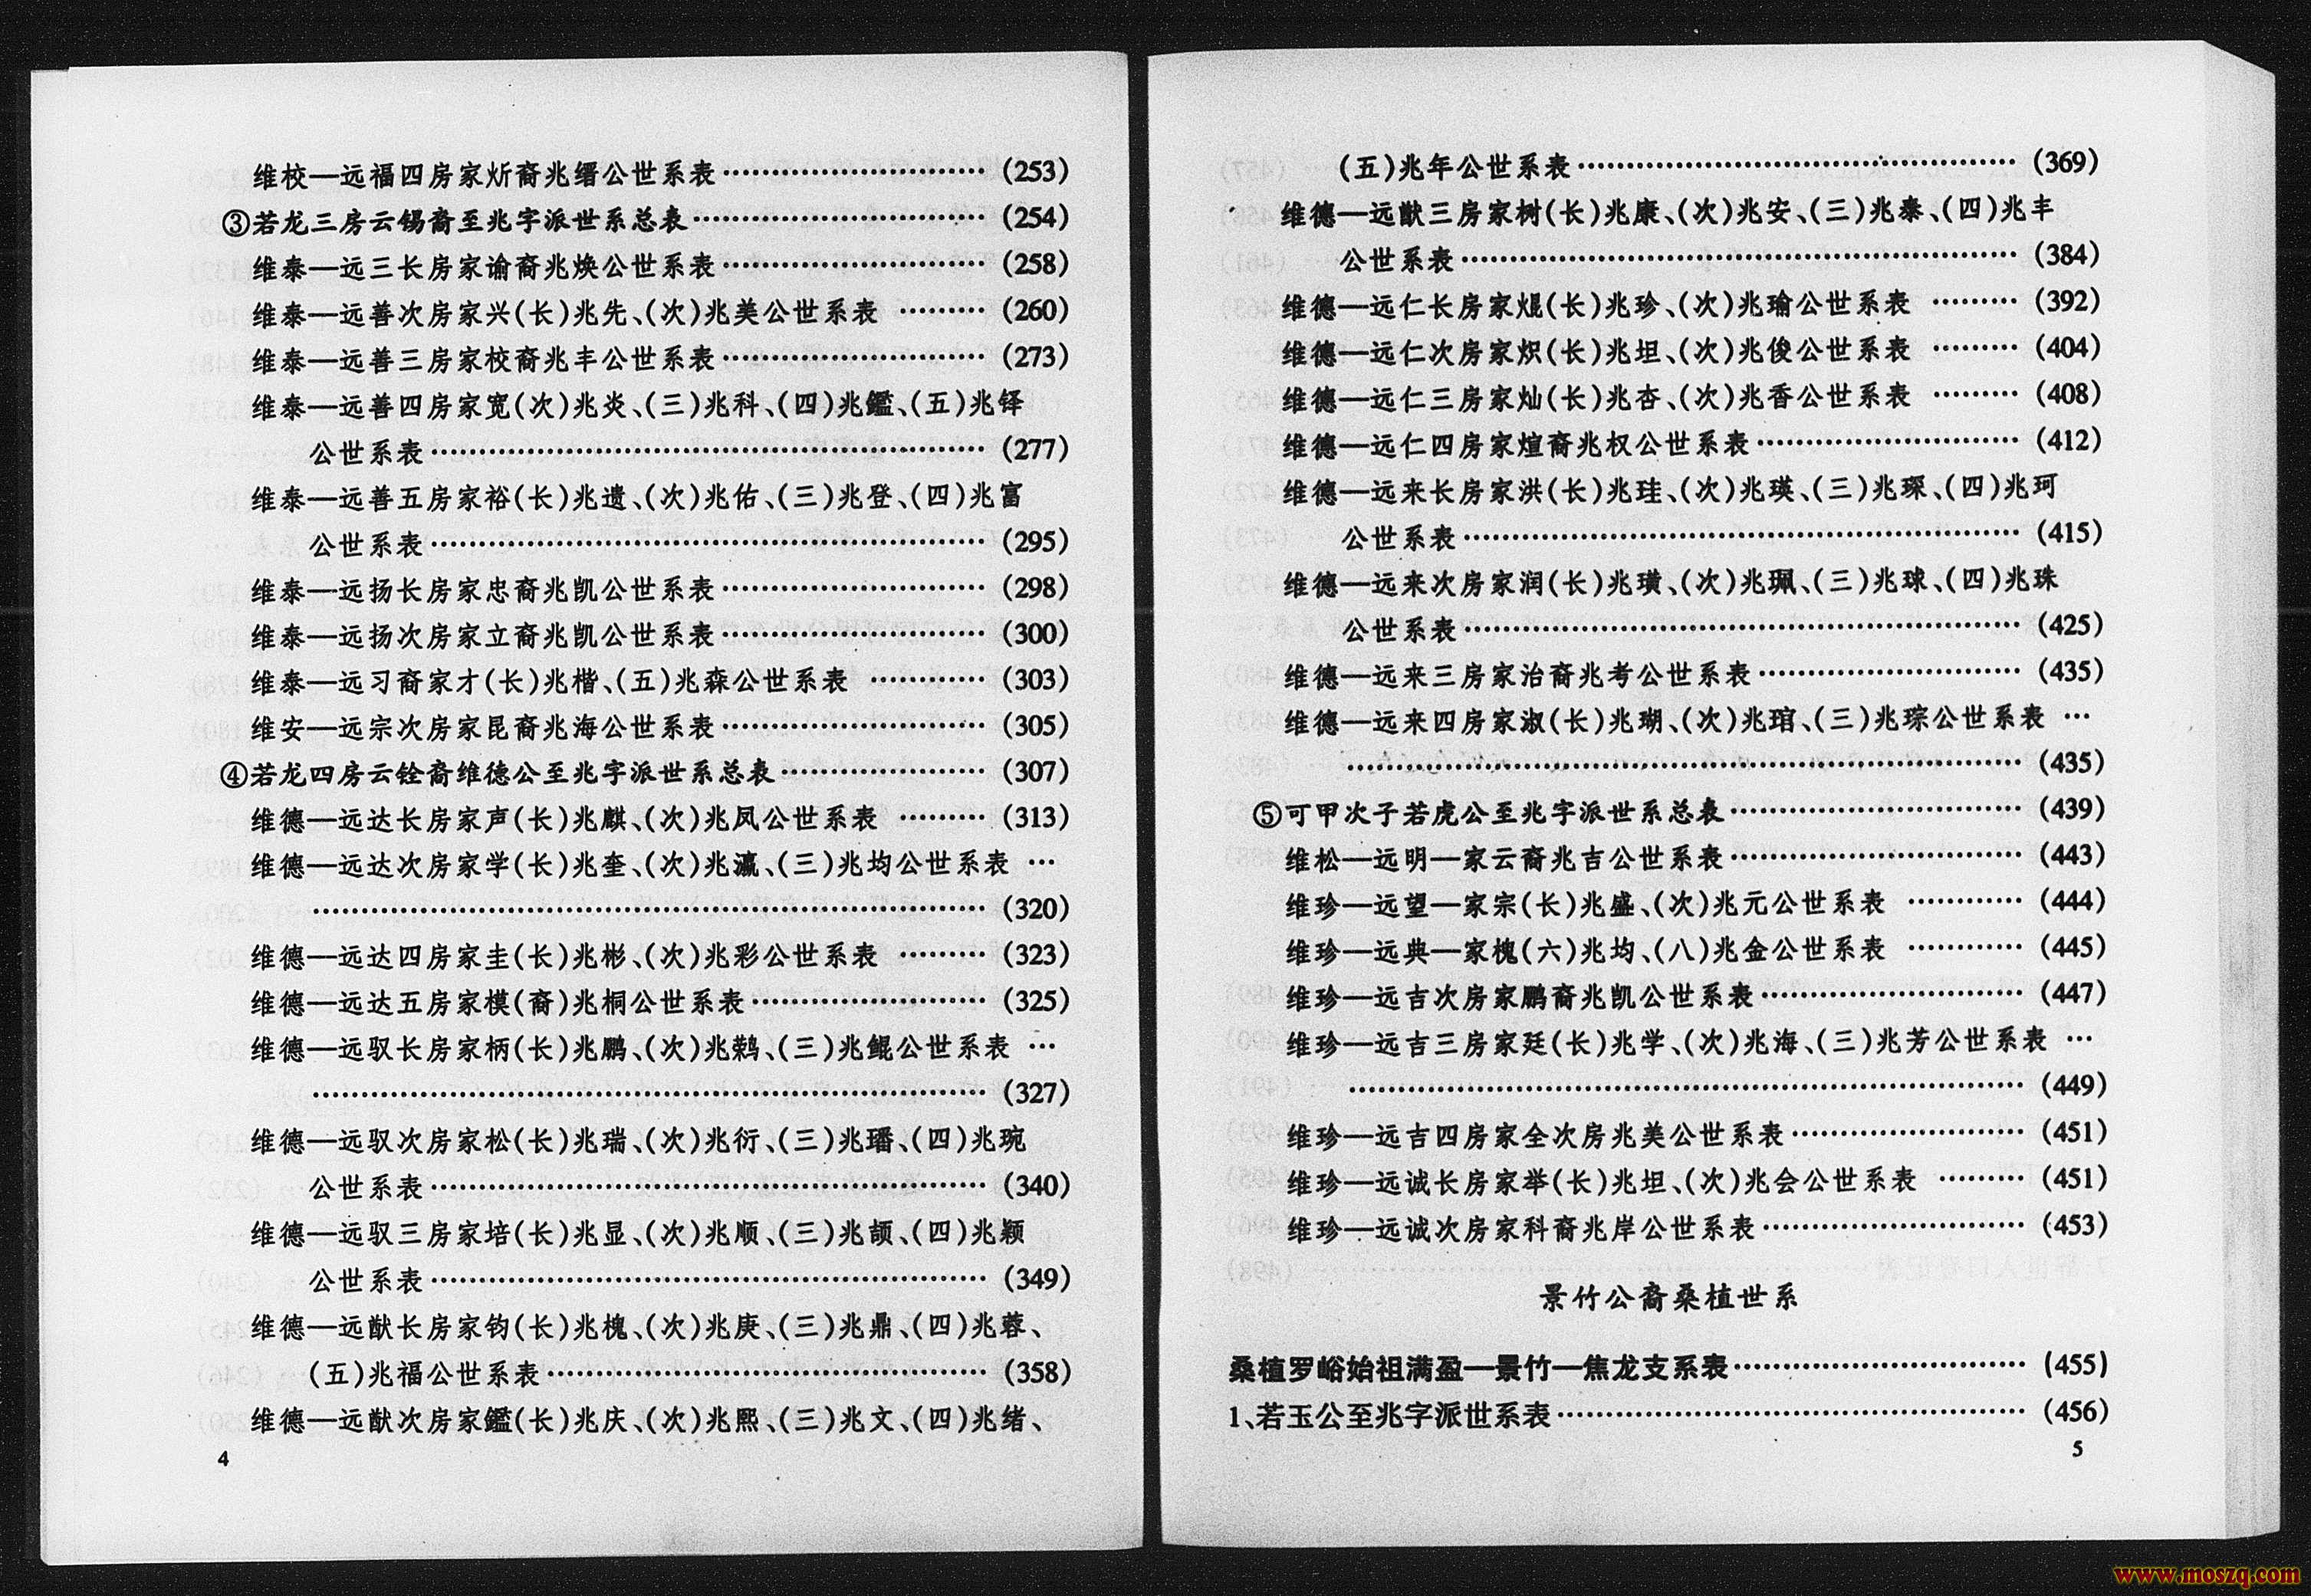 维校—远福四房家炘裔兆缙公世系表…………………………(253)
③若龙三房云锡裔至兆字派世系总表…………………………(254)
维泰—远三长房家谕裔兆焕公世系表…………………………(258)
维泰—远善次房家兴(长)兆先、(次)兆美公世系表 ………(260)
维泰—远善三房家校裔兆丰公世系表…………………………(273)
维泰—远善四房家宽(次)兆炎、(三)兆科、(四)兆鑑、(五)兆铎
公世系表……………………………………………………(277)
维泰—远善五房家裕(长)兆遗、(次)兆佑、(三)兆登、(四)兆富
公世系表……………………………………………………(295)
维泰—远扬长房家忠裔兆凯公世系表…………………………(298)
维泰—远扬次房家立裔兆凯公世系表…………………………(300)
维泰—远习裔家才(长)兆楷、(五)兆森公世系表 …………(303)
维安—远宗次房家昆裔兆海公世系表…………………………(305)
④若龙四房云铨裔维德公至兆字派世系总表…………………(307)
维德—远达长房家声(长)兆麒、(次)兆凤公世系表 ………(313)
维德—远达次房家学(长)兆奎、(次)兆瀛、(三)兆均公世系表 …
………………………………………………………………(320)
维德—远达四房家圭(长)兆彬、(次)兆彩公世系表 ………(323)
维德—远达五房家模(裔)兆桐公世系表………………………(325)
维德—远驭长房家柄(长)兆鹏、(次)兆鹣、(三)兆鲲公世系表 …
………………………………………………………………(327)
维德—远驭次房家松(长)兆瑞、(次)兆衍、(三)兆璠、(四)兆琬
公世系表……………………………………………………(340)
维德—远驭三房家培(长)兆显、(次)兆顺、(三)兆颉、(四)兆颖
公世系表……………………………………………………(349)
维德—远猷长房家钧(长)兆槐、(次)兆庚、(三)兆鼎、(四)兆蓉、
(五)兆福公世系表…………………………………………(358)
维德—远猷次房家鑑(长)兆庆、(次)兆熙、(三)兆文、(四)兆绪、
4
(五)兆年公世系表…………………………………………(369)
维德—远猷三房家树(长)兆康、(次)兆安、(三)兆泰、(四)兆丰
公世系表……………………………………………………(384)
维德—远仁长房家焜(长)兆珍、(次)兆瑜公世系表 ………(392)
维德—远仁次房家炽(长)兆坦、(次)兆俊公世系表 ………(404)
维德—远仁三房家灿(长)兆杏、(次)兆香公世系表 ………(408)
维德—远仁四房家煊裔兆权公世系表…………………………(412)
维德—远来长房家洪(长)兆珪、(次)兆瑛、(三)兆琛、(四)兆珂
公世系表……………………………………………………(415)
维德—远来次房家润(长)兆璜、(次)兆珮、(三)兆球、(四)兆珠
公世系表……………………………………………………(425)
维德—远来三房家治裔兆考公世系表…………………………(435)
维德—远来四房家淑(长)兆瑚、(次)兆琯、(三)兆琮公世系表 …
………………………………………………………………(435)
⑤可甲次子若虎公至兆字派世系总表…………………………(439)
维松—远明—家云裔兆吉公世系表……………………………(443)
维珍—远望—家宗(长)兆盛、(次)兆元公世系表 …………(444)
维珍—远典—家槐(六)兆均、(八)兆金公世系表 …………(445)
维珍—远吉次房家鹏裔兆凯公世系表…………………………(447)
维珍—远吉三房家廷(长)兆学、(次)兆海、(三)兆芳公世系表 …
………………………………………………………………(449)
维珍—远吉四房家全次房兆美公世系表………………………(451)
维珍—远诚长房家举(长)兆坦、(次)兆会公世系表 ………(451)
维珍—远诚次房家科裔兆岸公世系表…………………………(453)
景竹公裔桑植世系
桑植罗峪始祖满盈—景竹—焦龙支系表………………………(455)
1、若玉公至兆字派世系表………………………………………(456)
5
www.moszq.com